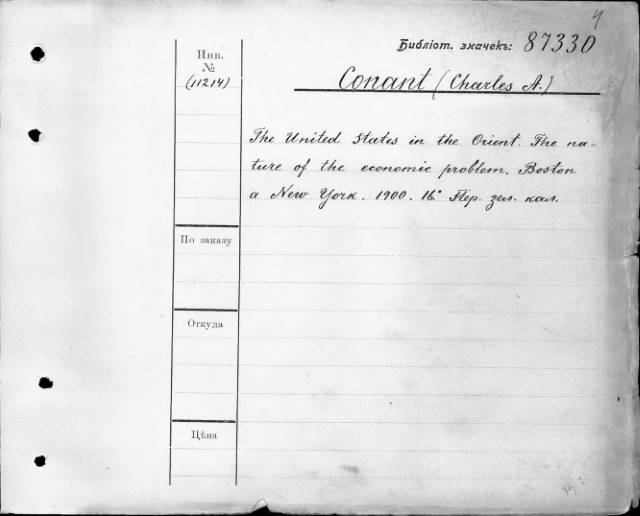 4
Библіот. значекъ: 87330
Инв.
№
(11214)
Conant (Charles A.)
The United States in the Orient. The na-
ture of the economic problem. Boston
a New York. 1900. 16° Пер. зел. кал.
По заказу
Откуда
Цѣна